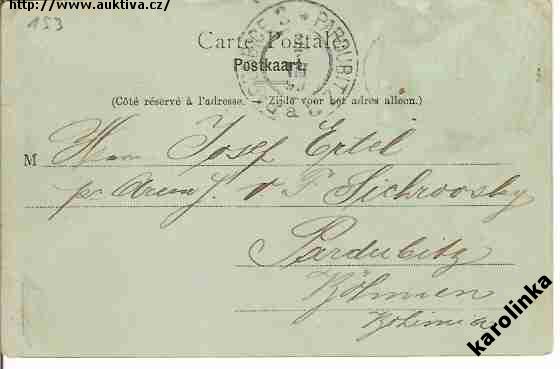 http://www.auktiva.cz/
153
Carte Postale
Postkaart.
PARDUBITZ
(Côté réservé à l'adresse. — Zijde voor het adres alleen.)
M Herrn Josef Ertel
pr. J. v F. Sichrovsky
Pardubitz
Böhmen
Bohimia
karolinka